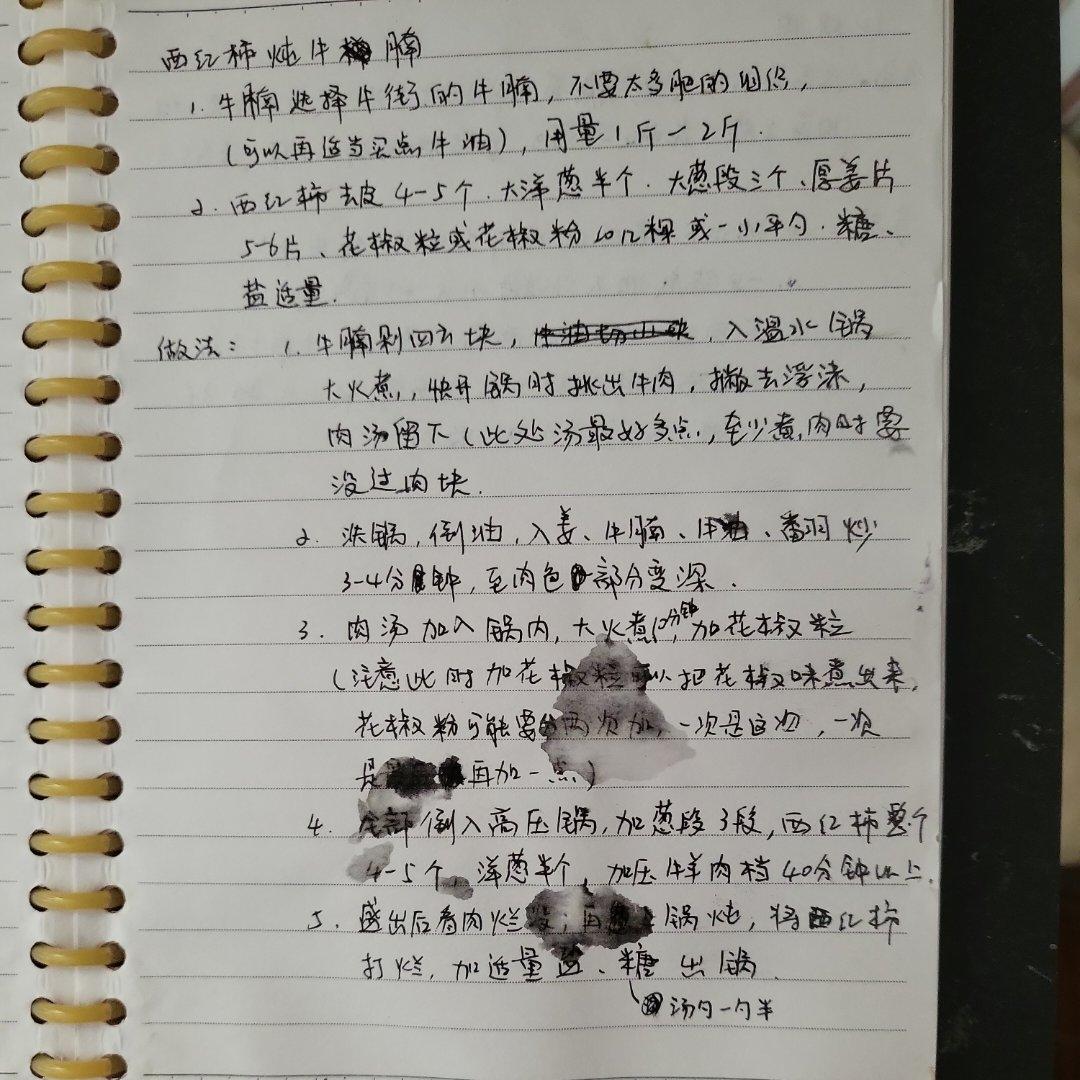 西红柿炖牛腩
1. 牛腩选择牛街的牛腩，不要太多肥的
(可以再适当买点牛油)，用量1斤—2斤.
2. 西红柿去皮4-5个. 大洋葱半个. 大葱段三个、厚姜片
5-6片、花椒粒或花椒粉10几粿或一小平勺. 糖、
盐适量.
做法： 1. 牛腩剁四方块，牛油切小块，入温水锅
大火煮，快开锅时挑出牛肉，撇去浮沫，
肉汤留下(此处汤最好多点，至少煮肉时要
没过肉块.
2. 洪锅，倒油，入姜、牛腩、牛油、番羽炒
3-4分钟，至肉色部分变深.
3. 肉汤加入锅内，大火煮10分钟，加花椒粒
(注意此时加花椒粒可以把花椒味煮出来，
花椒粉可能要分两次加，一次是这次，一次
是 再加一点)
4. 全部倒入高压锅，加葱段3段，西红柿整个
4-5个，洋葱半个，加压牛羊肉档40分钟以上.
5. 盛出后看肉烂没；再 锅炖，将西红柿
打烂，加适量盐、糖出锅.
汤勺一勺半